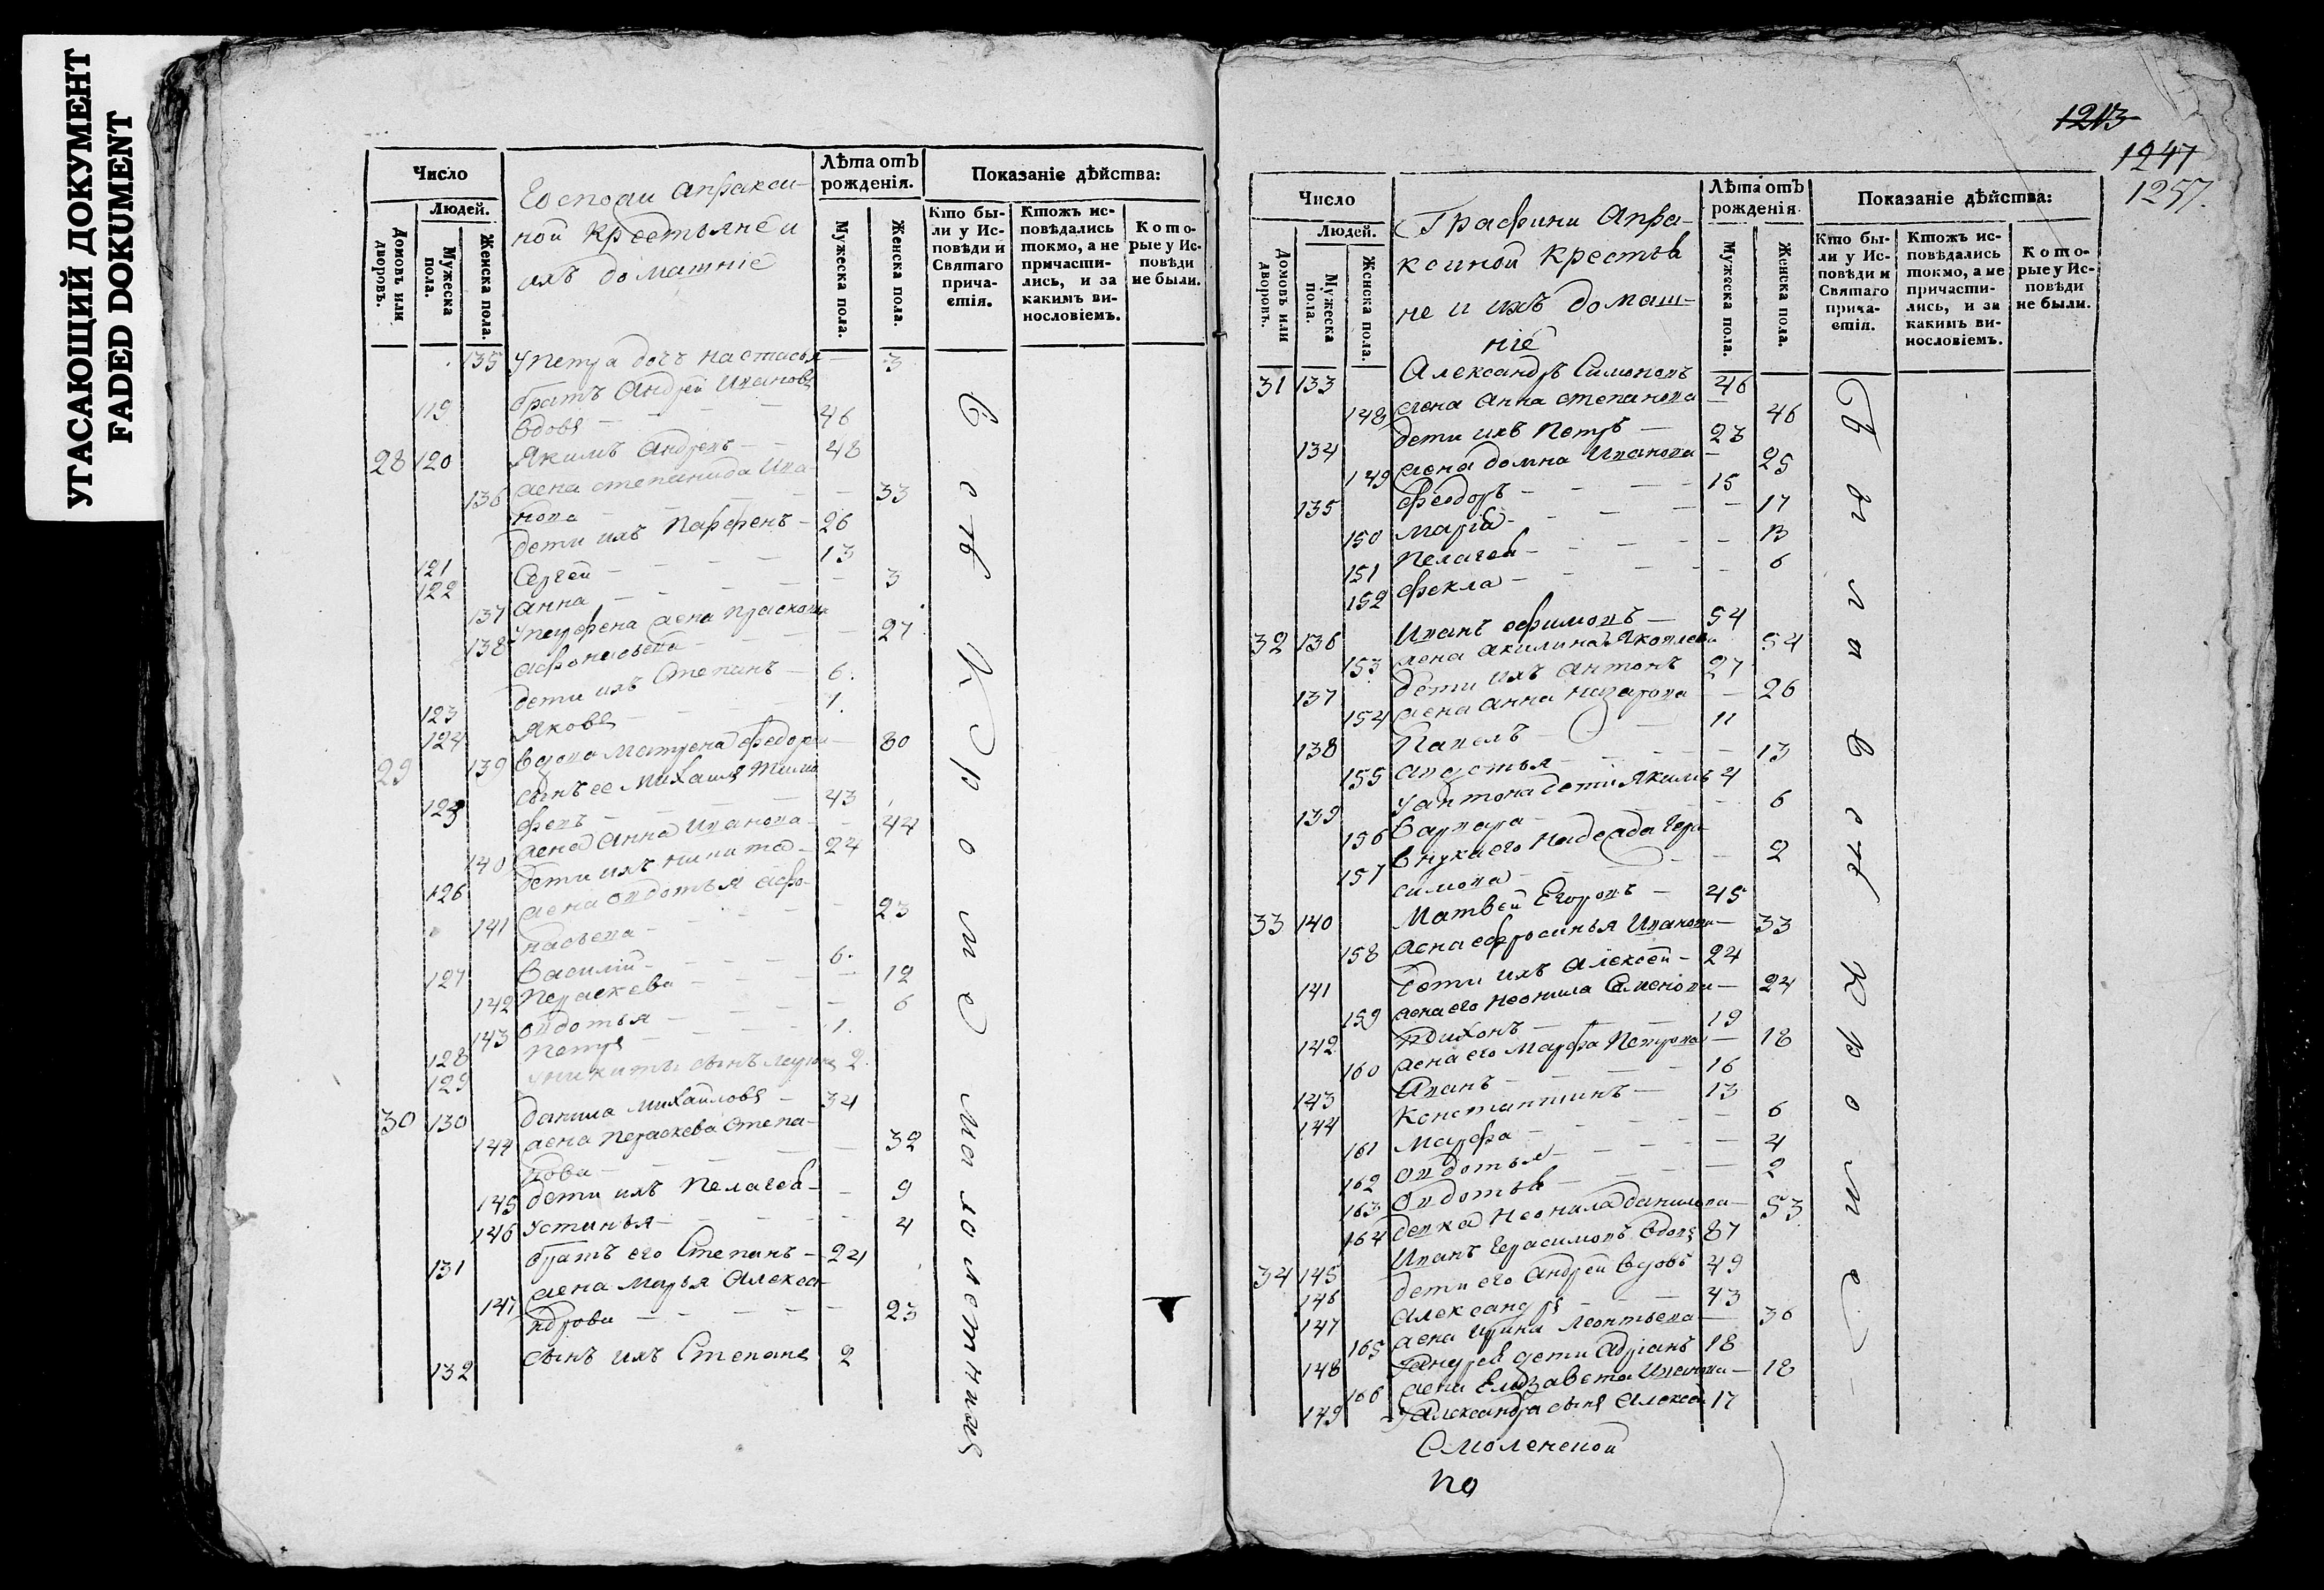 УГАСАЮЩИЙ ДОКУМЕНТ
FADED DOKUMENT
Число
Людей.
Домовъ или дворовъ.
Мужеска пола.
Женска пола.
Господи Апракси-
ной Крестьяне и
ихъ домашніе
Лѣта отъ рожденія.
Мужеска пола.
Женска пола.
Показаніе дѣйства:
Кто бы-
ли у Ис-
повѣди и
Святаго
прича-
стія.
Ктожъ ис-
повѣдались
токмо, а не
причасти-
лись, и за
какимъ ви-
нословіемъ.
Кото-
рые у Ис-
повѣди
не были.
135 У Петра дочь Настасья — 3
братъ Андрей Ивановъ
119 вдовъ — 46
28 120 Якимъ Андреевъ — 48
136 жена степанида Ива-
нова — 33
дети ихъ Парфенъ — 26
121 Сергей — 13
122
137 анна — 3
138 У парфена жена Прасковья
афонасьева — 27
дети ихъ Степанъ — 6.
123
124 Яковъ — 1.
29 139 вдова Матрена федорова — 80
сынъ ее Михаилъ Тимо
125 февъ — 43
140 жена Анна Иванова — 44
126 дети ихъ никита — 24
141 жена овдотья афо-
насьева — 23
127 Василій — 6.
142 Параскева — 12
143 овдотья — 6
128 Петръ — 1.
129 у никиты сынъ 2.
30 130 данила михаиловъ — 34
144 жена Параскева Степа-
нова — 32
145 дети ихъ Пелагея — 9
146 Устинья — 4
131 братъ его Степанъ — 24
147 жена Марья Алекса-
ндрова — 23
132 сынъ ихъ Степанъ 2
1213
1247
1257.
Число
Людей.
Домовъ или дворовъ.
Мужеска пола.
Женска пола.
Графини Апра-
ксиной Крестья
не и ихъ домаш-
ніе
Лѣта отъ рожденія.
Мужеска пола.
Женска пола.
Показаніе дѣйства:
Кто бы-
ли у Ис-
повѣди и
Святаго
прича-
стія.
Ктожъ ис-
повѣдались
токмо, а не
причасти-
лись, и за
какимъ ви-
нословіемъ.
Кото-
рые у Ис-
повѣди
не были.
31 133 Александръ Симоновъ 46
148 жена Анна степанова — 46
134 дети ихъ Петръ — 23
149 жена домна Иванова — 25
135 феодоръ — 15
150 Марія — 17
151 Пелагея — 13
152 фекла — 6
32 136 Иванъ ефимовъ — 54
153 жена акилина Яковлева 54
137 дети ихъ антонъ 27
154 жена анна назарова — 26
138 Павелъ — 11
155 авдотья — 13
139 у антона дети Якимъ 4
156 Варвара — 6
157 внука его Надежда Гера
симова — 2
33 140 Матвей Егоровъ — 45
158 жена ефросинья Иванова — 33
141 дети ихъ Алексей — 24
159 жена его неонила Семенова — 24
142 тихонъ — 19
160 жена его Марфа Петрова — 18
143 Иванъ — 16
144 Константинъ — 13
161 Марфа — 6
162 овдотья — 4
163 Овдотья — 2
164 девка Неонила данилова — 53
34 145 Иванъ Герасимовъ вдовъ 87
146 дети его андрей вдовъ 49
147 Александръ — 43
165 жена Ирина Леонтьева — 36
148 У андрея дети Адріанъ 18
166 жена Елизавета Иванова — 18
149 У Александра сынъ Алексей 17
Смоленской
по